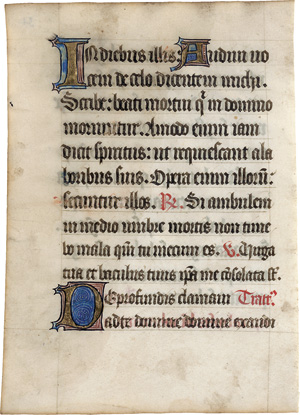 In diebus illis. Audivi vo
cem de celo dicentem michi.
Scribe: beati mortui q̄ in domino
moriuntur. Amodo enim iam
dicit spiritus: ut requiescant a la
boribus suis. Opera enim illorū:
secuntur illos. R. Si ambulem
in medio umbre mortis non time
bo mala qm̄ tu mecum es. V. Virga
tua et baculus tuus ip̄a me cōsolata st̄.
De profundis clamavi Tract̄.
ad te domine domine exaudi